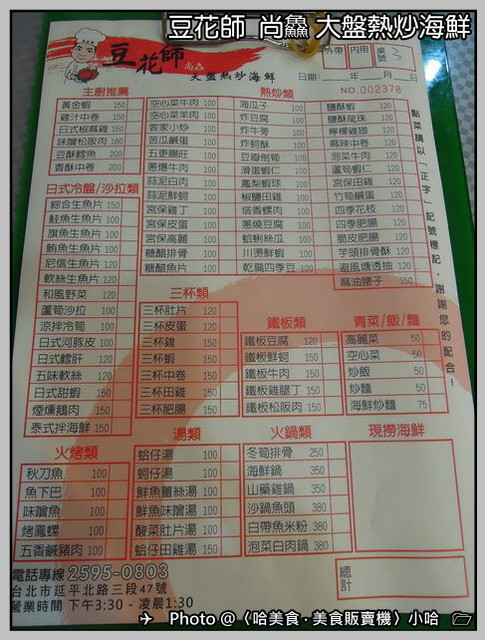 豆花師 尚鱻 大盤熱炒海鮮
豆花師 尚鱻
大盤熱炒海鮮
外帶 內用 桌號 3
日期: 年 月 日
NO.002378
點菜請以「正字」記號標記,謝謝您的配合!
主廚推薦
黃金蝦 150
雞汁中卷 150
日式椒麻雞 150
味噌松阪肉 180
豆酥鱈魚 200
香酥中卷 200
日式冷盤/沙拉類
綜合生魚片 150
鮭魚生魚片 100
旗魚生魚片 100
鮪魚生魚片 120
尼信生魚片 120
軟絲生魚片 120
和風野菜 120
蘆筍沙拉 100
涼拌冷筍 100
日式河豚皮 100
日式鱈肝 120
五味軟絲 120
日式甜蝦 150
煙燻鵝肉 150
泰式拌海鮮 150
火烤類
秋刀魚 100
魚下巴 100
味噌魚 100
烤鳳螺 100
五香鹹豬肉 100
熱炒類
空心菜牛肉 100
空心菜羊肉 100
客家小炒 100
苦瓜鹹蛋 100
五更腸旺 100
蔥爆牛肉 100
蒜泥白肉 100
蒜泥鮮蚵 100
宮保雞丁 100
宮保皮蛋 100
宮保高麗 100
糖醋排骨 100
糖醋魚片 100
海瓜子 100
炸豆腐 100
炸牛蒡 100
炸蚵酥 100
豆瓣劍筍 100
滑蛋蝦仁 100
鳳梨蝦球 100
椒鹽田雞 100
塔香螺肉 100
蔥燒豆腐 100
蛤蜊絲瓜 100
川燙鮮蝦 100
乾扁四季豆 100
鹽酥蝦 120
鹽酥龍珠 120
檸檬雞翅 120
麻辣中卷 120
泡菜牛肉 120
蘆筍蝦仁 120
宮保田雞 120
竹筍鹹蛋 120
四季花枝 120
四季肥腸 120
脆皮肥腸 120
芋頭排骨酥 120
避風塘透抽 120
麻油腰子 150
三杯類
三杯肚片 120
三杯皮蛋 120
三杯雞 150
三杯蝦 150
三杯中卷 150
三杯田雞 150
三杯肥腸 150
鐵板類
鐵板豆腐 120
鐵板鮮蚵 150
鐵板牛肉 150
鐵板雞腿丁 150
鐵板松阪肉 150
青菜/飯/麵
高麗菜 50
空心菜 50
炒飯 50
炒麵 50
海鮮炒麵 75
湯類
蛤仔湯 100
蚵仔湯 100
鮮魚薑絲湯 100
鮮魚味噌湯 100
酸菜肚片湯 100
蛤仔田雞湯 150
火鍋類
冬筍排骨 250
海鮮鍋 350
山藥雞鍋 350
沙鍋魚頭 350
白帶魚米粉 380
泡菜白肉鍋 380
現撈海鮮
總計
電話專線 2595-0803
台北市延平北路三段47號
營業時間 下午3:30 - 凌晨1:30
Photo @〈哈美食‧美食販賣機〉小哈